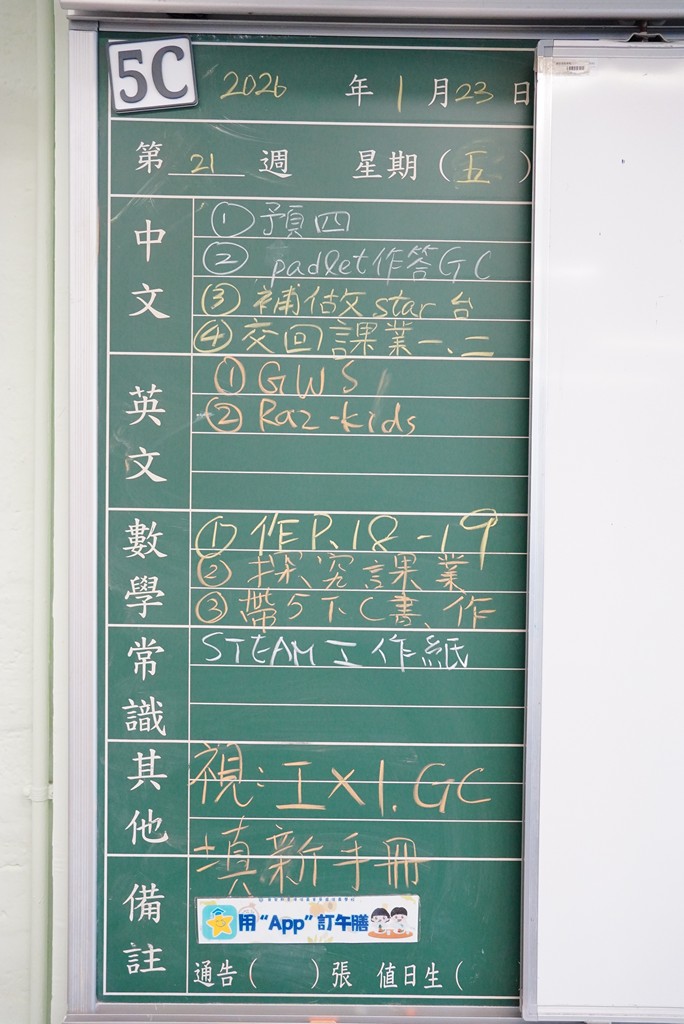 5C 2026 年 1 月 23 日
第 21 週 星期（五）
中文
① 預四
② padlet作答GC
③ 補做文star台
④ 交回課業一、二
英文
① GWS
② Raz-kids
數學
① 作P.18-19
② 探究課業
③ 帶5下C書、作
常識
STEAM工作紙
其他
視：工×1.GC
填新手冊
備註
用“App”訂午膳
通告（ ）張 值日生（